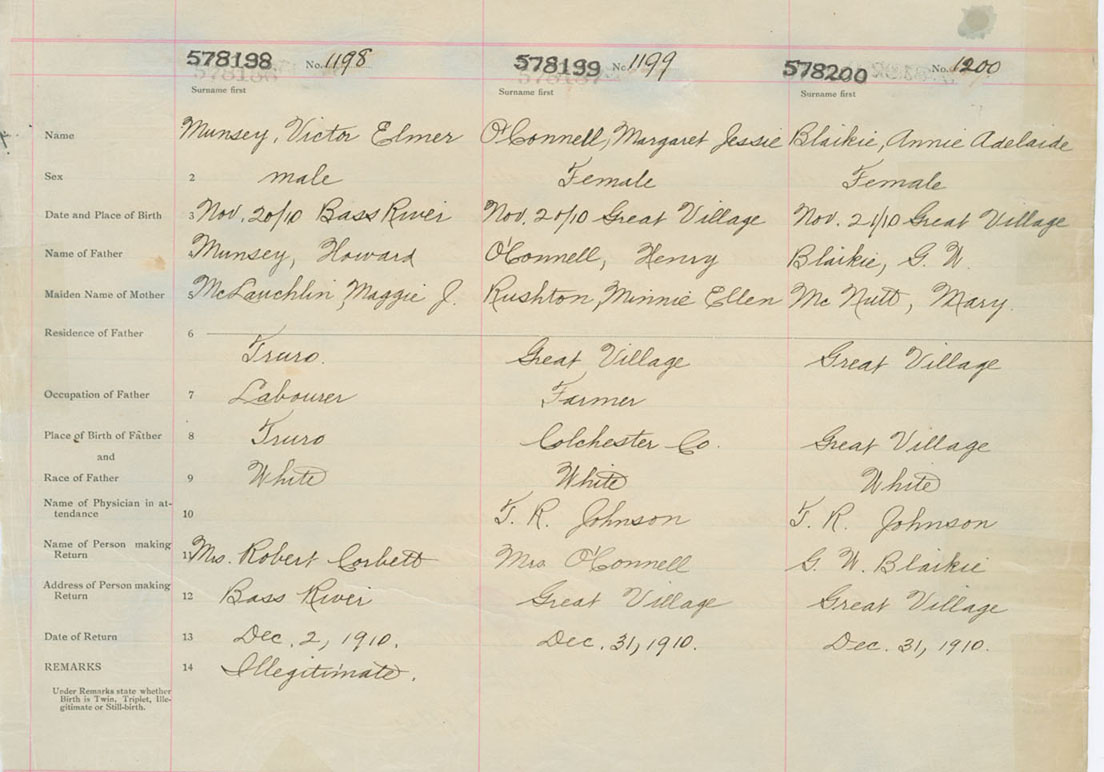 578198 No. 1198 578199 No. 1199 578200 No. 1200
Surname first Surname first Surname first
Name Munsey, Victor Elmer O'Connell, Margaret Jessie Blaikie, Annie Adelaide
Sex 2 male Female Female
Date and Place of Birth 3 Nov. 20/10 Bass River Nov. 20/10 Great Village Nov. 21/10 Great Village
Name of Father Munsey, Howard O'Connell, Henry Blaikie, G. W.
Maiden Name of Mother 5 McLauchlin, Maggie J. Rushton, Minnie Ellen Mc Nutt, Mary.
Residence of Father 6
Truro. Great Village Great Village
Occupation of Father 7 Labourer Farmer
Place of Birth of Father 8 Truro Colchester Co. Great Village
and
Race of Father 9 White White White
Name of Physician in at-
tendance 10 T. R. Johnson T. R. Johnson
Name of Person making
Return 11 Mrs. Robert Corbett Mrs O'Connell G. W. Blaikie
Address of Person making
Return 12 Bass River Great Village Great Village
Date of Return 13 Dec. 2, 1910. Dec. 31, 1910. Dec. 31, 1910.
REMARKS 14 Illegitimate.
Under Remarks state whether
Birth is Twin, Triplet, Ille-
gitimate or Still-birth.